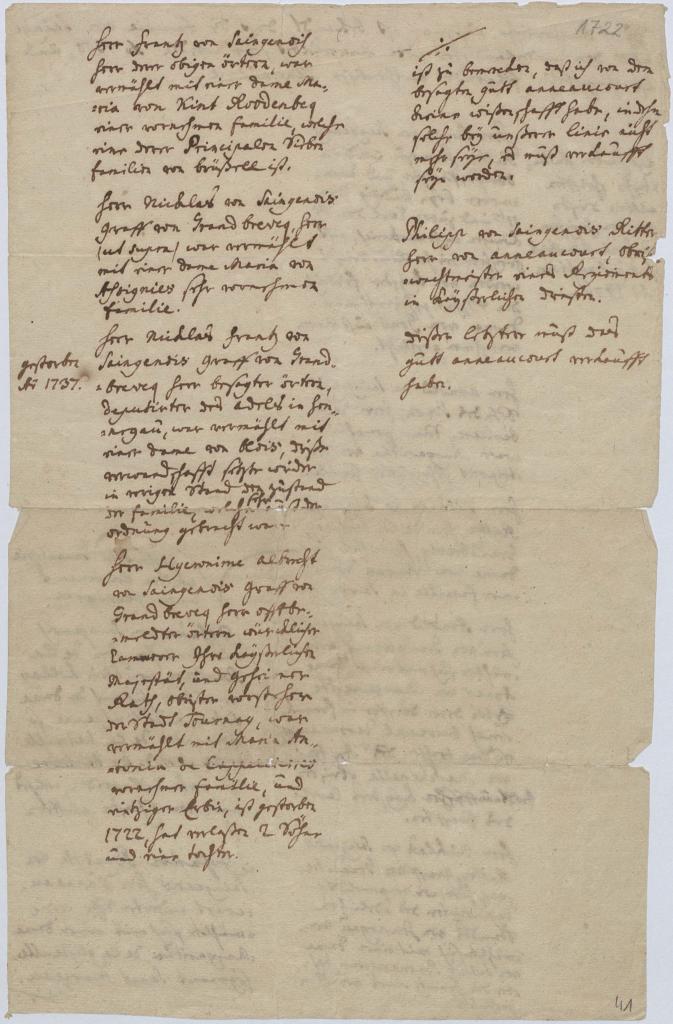 Herr Frantz von Saingenois
Herr derer obigen örtern, war
vermählt mit einer dame Ma-
ria von Kint Roodenbeg
einer vornehmen familie, welche
eine derer Principalen Sieben
familien von brüßell ist.
Herr Nicklas von Saingenois
Graff von Grand breucg, Herr
(ut supra) war vermählt
mit einer dame Maria von
sehr vornehmen
familie.
gestorben
Aō 1737.
Herr Nicklas Frantz von
Saingenois Graff von Grand-
breucg Herr besagter örtern,
deputirter des adels in Hen-
negau, war vermählt mit
einer dame von Blois, diese
verwandschafft setzte wieder
in vorigen Stand den zustand
der familie, welche auß der
ordnung gebracht war
Herr Hyeronime Albrecht
von Saingenois Graff von
Grand breucg Herr offt be-
meldter örtern würcklicher
Cammerer Ihro Kayserlichen
Majestät, und geheimer
Rath, obrister vorsteher
der Stadt Tournay, war
vermählt mit Maria An-
tonia de
vornehmer familie, und
eintziger Erbin, ist gestorben
1722, hat verlaßen 2 Söhne
und eine tochter.
1722
ist zu bemercken, daß ich von dem
besagten gutt anneaucourt
keine wißenschafft habe, indehm
solche bey unserer linie nicht
mehr seye, es muß verkaufft
seyn worden.
Philipp von Saingenois Ritter
Herr von anneaucourt, obrist-
wachtmeister eines Regiments
in Kayserlichen diensten.
dießer letzterer muß das
gutt anneaucourt verkaufft
haben.
41